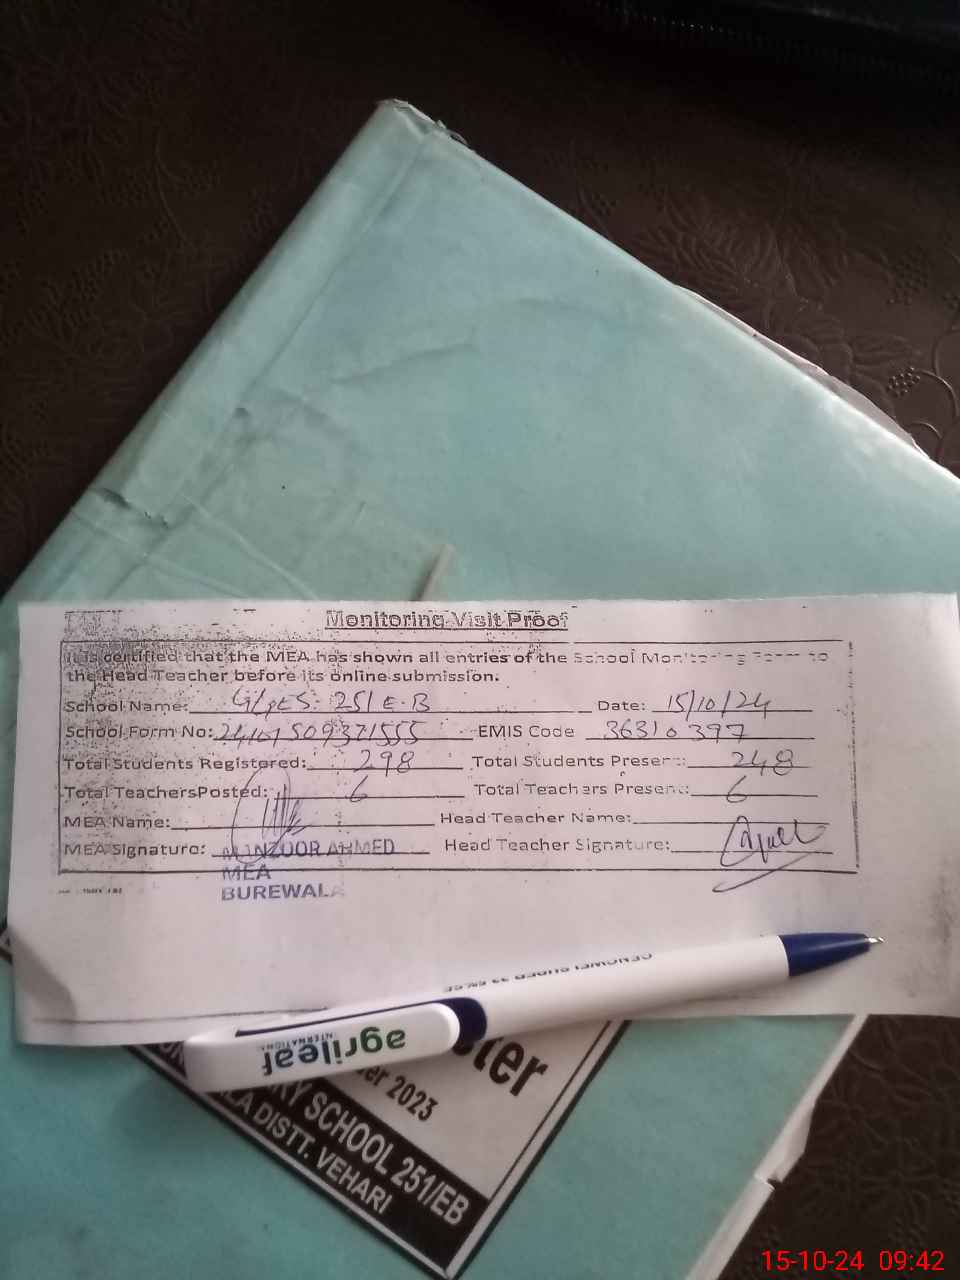 Monitoring Visit Proof
It is certified that the MEA has shown all entries of the School Monitoring Form to
the Head Teacher before its online submission.
School Name: GGPES. 251 E.B Date: 15/10/24
School Form No: EMIS Code 36310397
Total Students Registered: 298 Total Students Present: 248
Total TeachersPosted: 6 Total Teachers Present: 6
MEA Name: Head Teacher Name:
MEA Signature: MANZOOR AHMED Head Teacher Signature:
MEA
BUREWALA
agrileaf
INTERNATIONAL
2023
RY SCHOOL 251/EB
LA DISTT. VEHARI
15-10-24 09:42